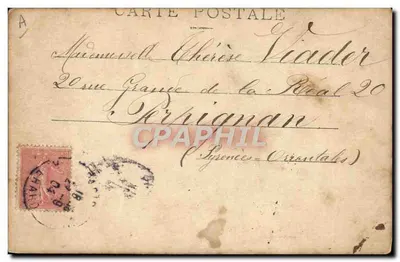 A
CARTE POSTALE
Mademoiselle Thérèse Viader
20 rue Grande de la Réal 20
Perpignan
CPARAMA
(Pyrénées-Orientales)